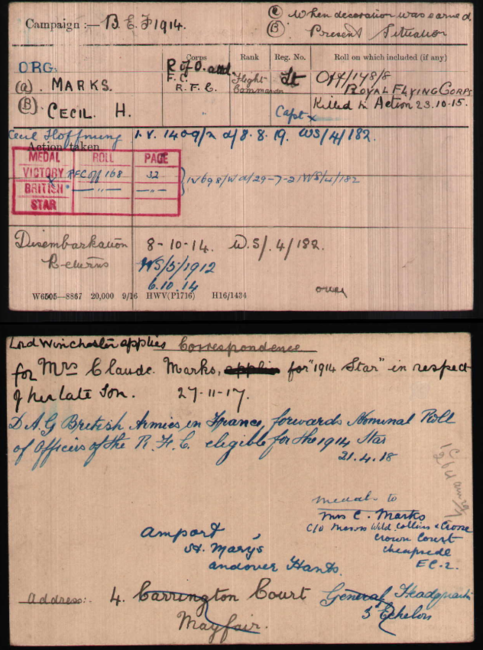 Campaign :— B.E.F 1914.
(A) When decoration was earned
(B) Present Situation
Corps
Rank
Reg. No.
Roll on which included (if any)
ORG.
(A) MARKS.
(B) CECIL. H.
F.C.
R.F.C.
Flight
Lt
Capt x
Off/148/8
ROYAL FLYING CORPS
Killed in Action 23.10.15.
Cecil Hoffnung
Action taken
I.V. 1409/2 d/8.8.19. WS/4/182.
MEDAL ROLL PAGE
VICTORY RFC Off 168 32
BRITISH —"— —"—
STAR
Disembarkation
Returns
8-10-14. W.S/.4/182.
WS/5/1912
6.10.14
over
W6505—8857 20,000 9/16 HWV(P1716) H16/1434
Lord Winchester applies Correspondence
for Mrs Claude Marks, applies for "1914 Star" in respect
of her late Son. 27-11-17.
D.A.G British Armies in France, forwards Nominal Roll
of Officers of the R.F.C. eligible for the 1914 Star
21.4.18
medals to
Mrs C. Marks
Crown Court
Cheapside
EC-2.
Amport
St. Mary's
Andover Hants.
Address:. 4. Carrington Court
Mayfair.
General Headquarters
3 Echelon